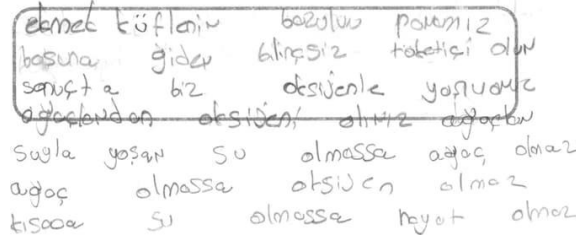 ekmek küflenir bozulur paramız
boşuna gider bilinçsiz tüketiçi olur
sonuçta biz oksijenle yaşıyoruz
ağaçlardan oksijeni alırız ağaçlar
suyla yaşar su olmassa ağaç olmaz
ağaç olmassa oksijen olmaz
kısaca su olmassa hayat olmaz